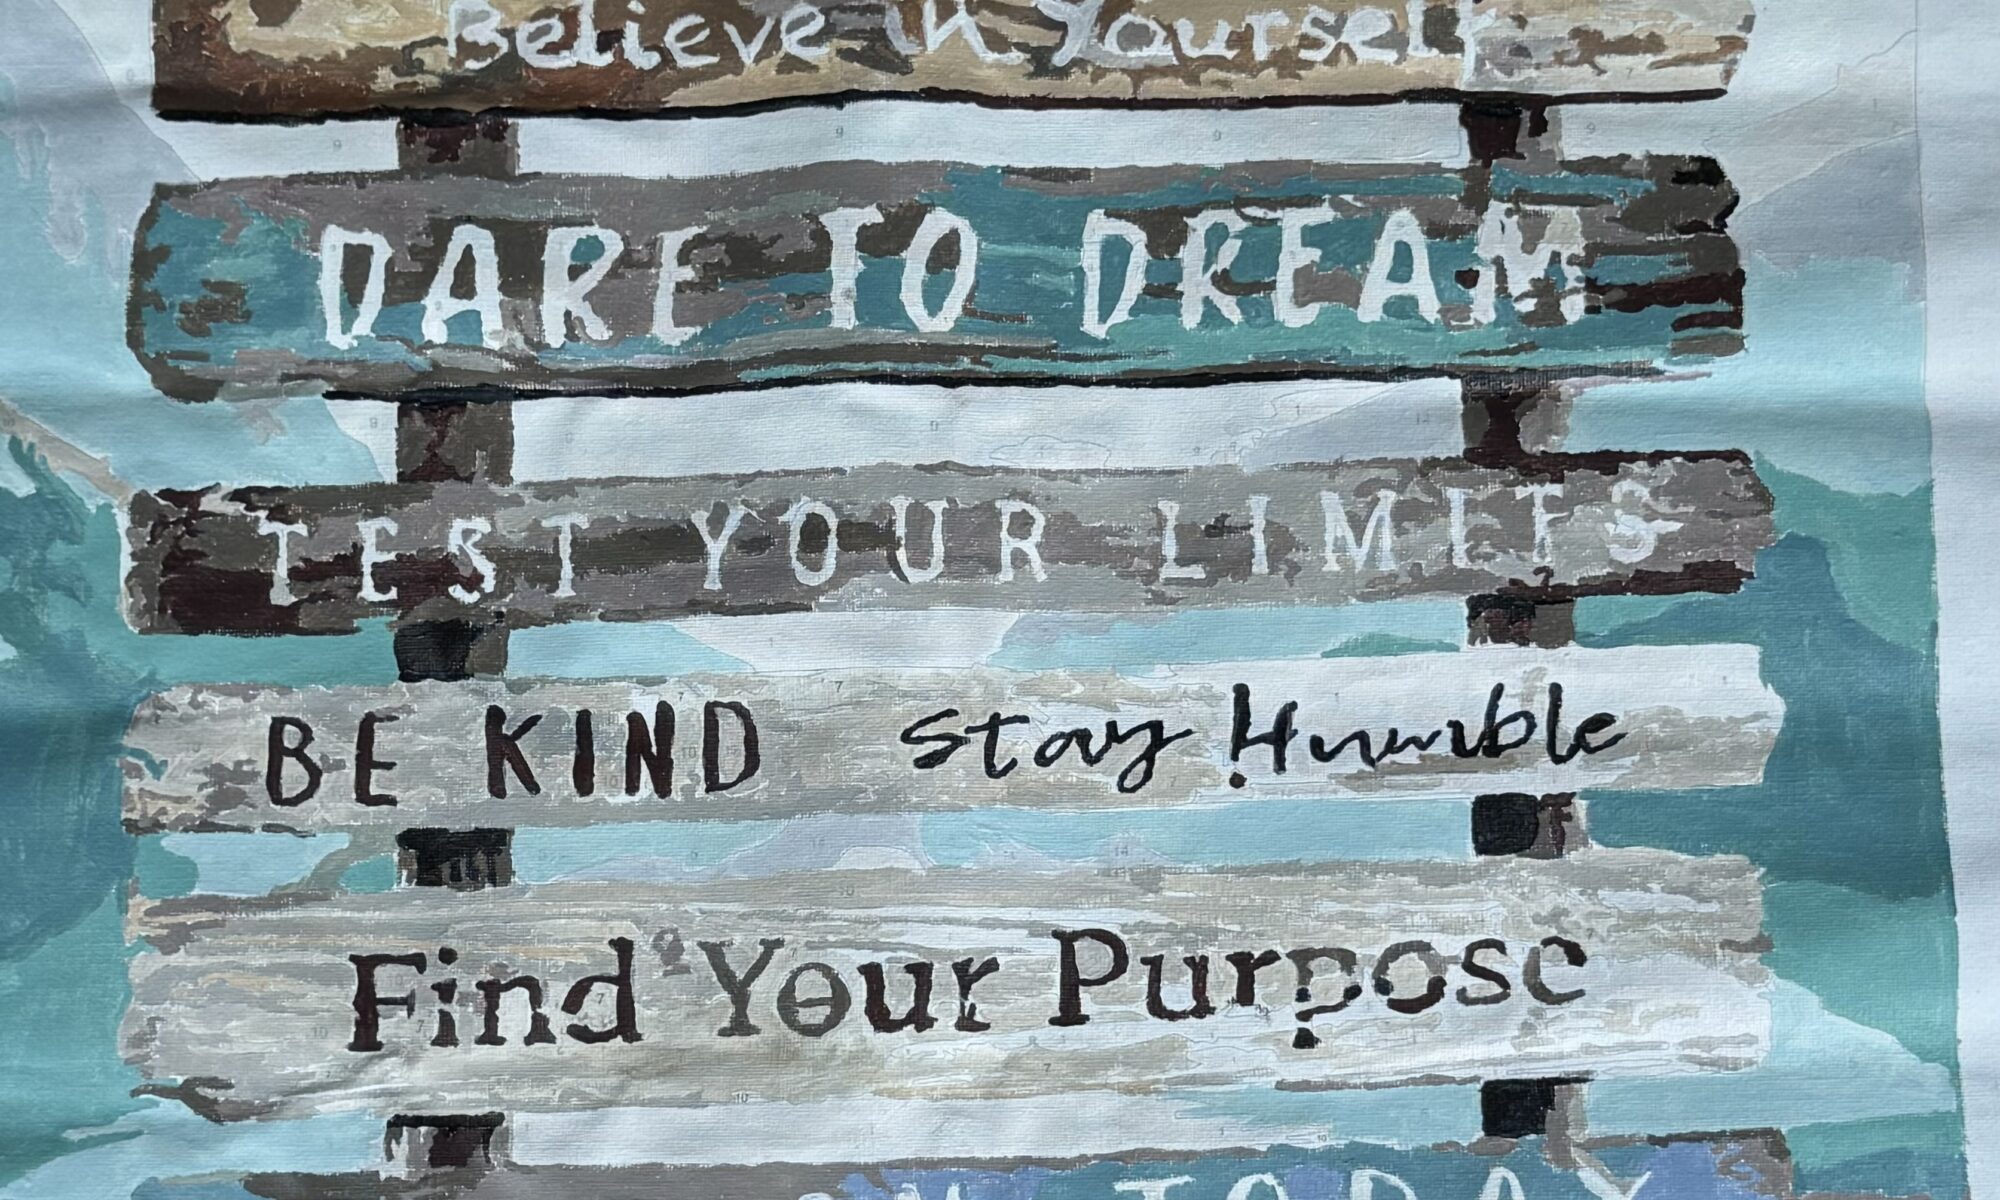 Believe in Yourself
DARE TO DREAM
TEST YOUR LIMITS
BE KIND Stay Humble
Find Your Purpose
TODAY